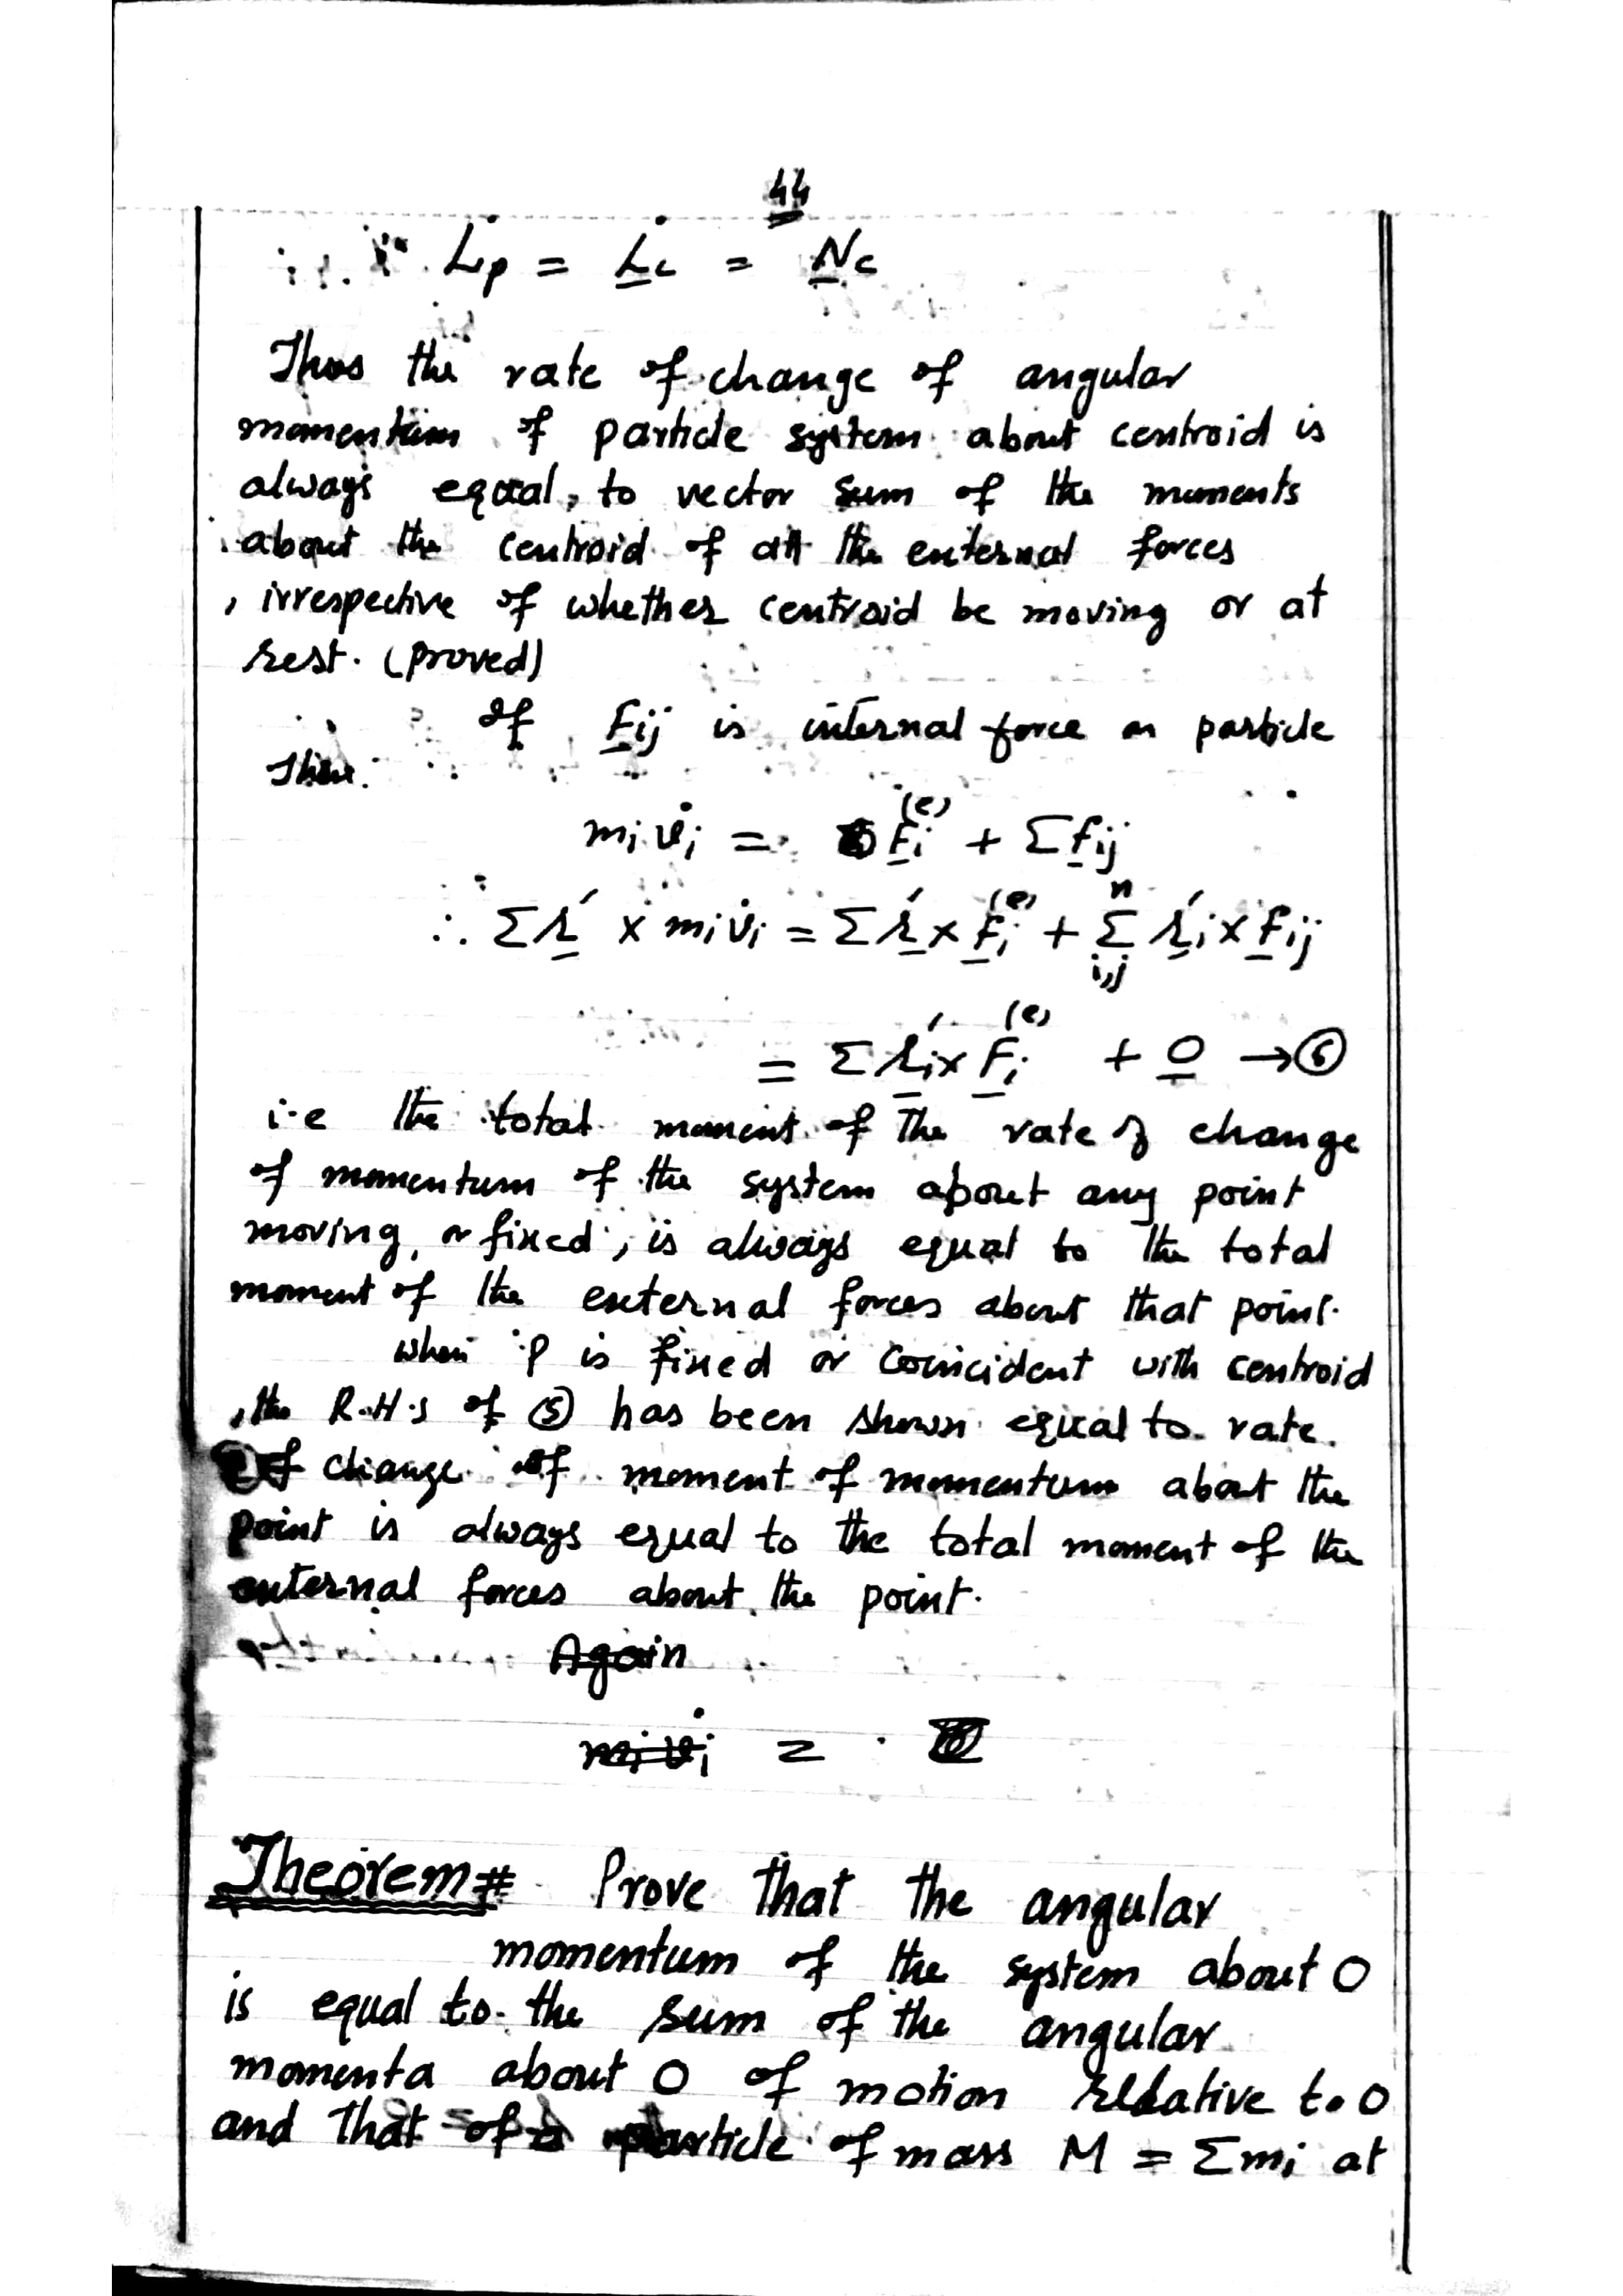 44
∴ L̇p = L̇c = Nc
Thus the rate of change of angular
momentum of particle system about centroid is
always equal, to vector sum of the moments
about the centroid of all the external forces
, irrespective of whether centroid be moving or at
rest. (proved)
If Fij is internal force on particle
Then
mi v̇i = Fi(e) + Σ Fij
∴ Σ r' × mi v̇i = Σ r' × Fi(e) + Σ(i,j)^n r'i × Fij
= Σ r'i × Fi(e) + 0 → ⑥
i-e the total moment of The rate of change
of momentum of the system about any point
moving, or fixed, is always equal to the total
moment of the external forces about that point.
when P is fixed or coincident with centroid
, the R.H.S of ⑤ has been shown equal to rate
of change of moment of momentum about the
point is always equal to the total moment of the
external forces about the point.
Again
mi v̇i =
Theorem# Prove that the angular
momentum of the system about O
is equal to the sum of the angular
momenta about O of motion relative to O
and that of particle of mass M = Σmi at